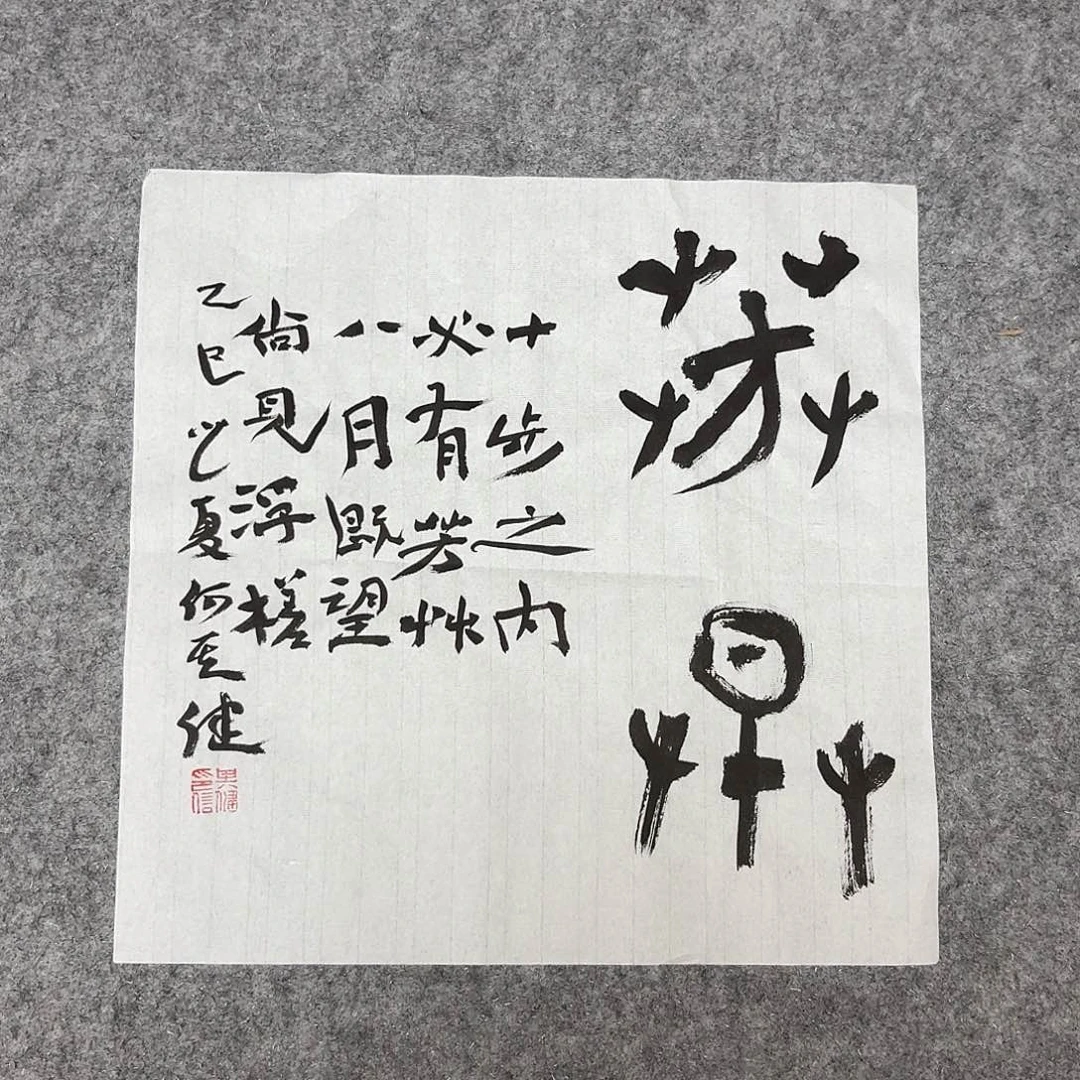 芳草
十步之内
必有芳艸
八月既望
尚見浮槎
乙巳 夏何 健